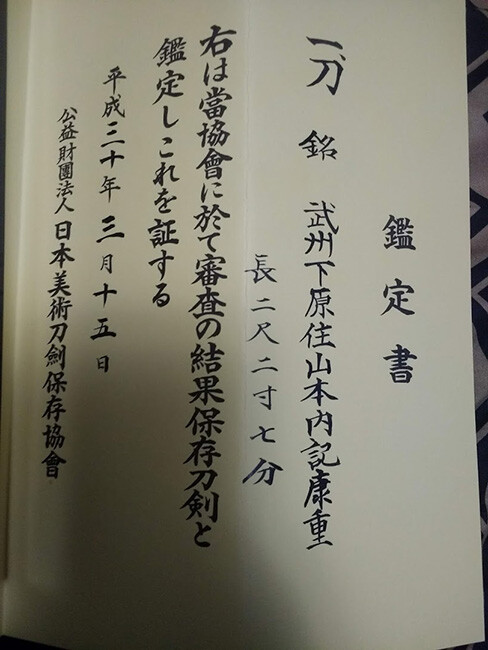 鑑定書
一、刀 銘 武州下原住山本内記康重
長二尺二寸七分
右は當協會に於て審査の結果保存刀剣と
鑑定しこれを証する
平成三十年三月十五日
公益財團法人日本美術刀劍保存協會